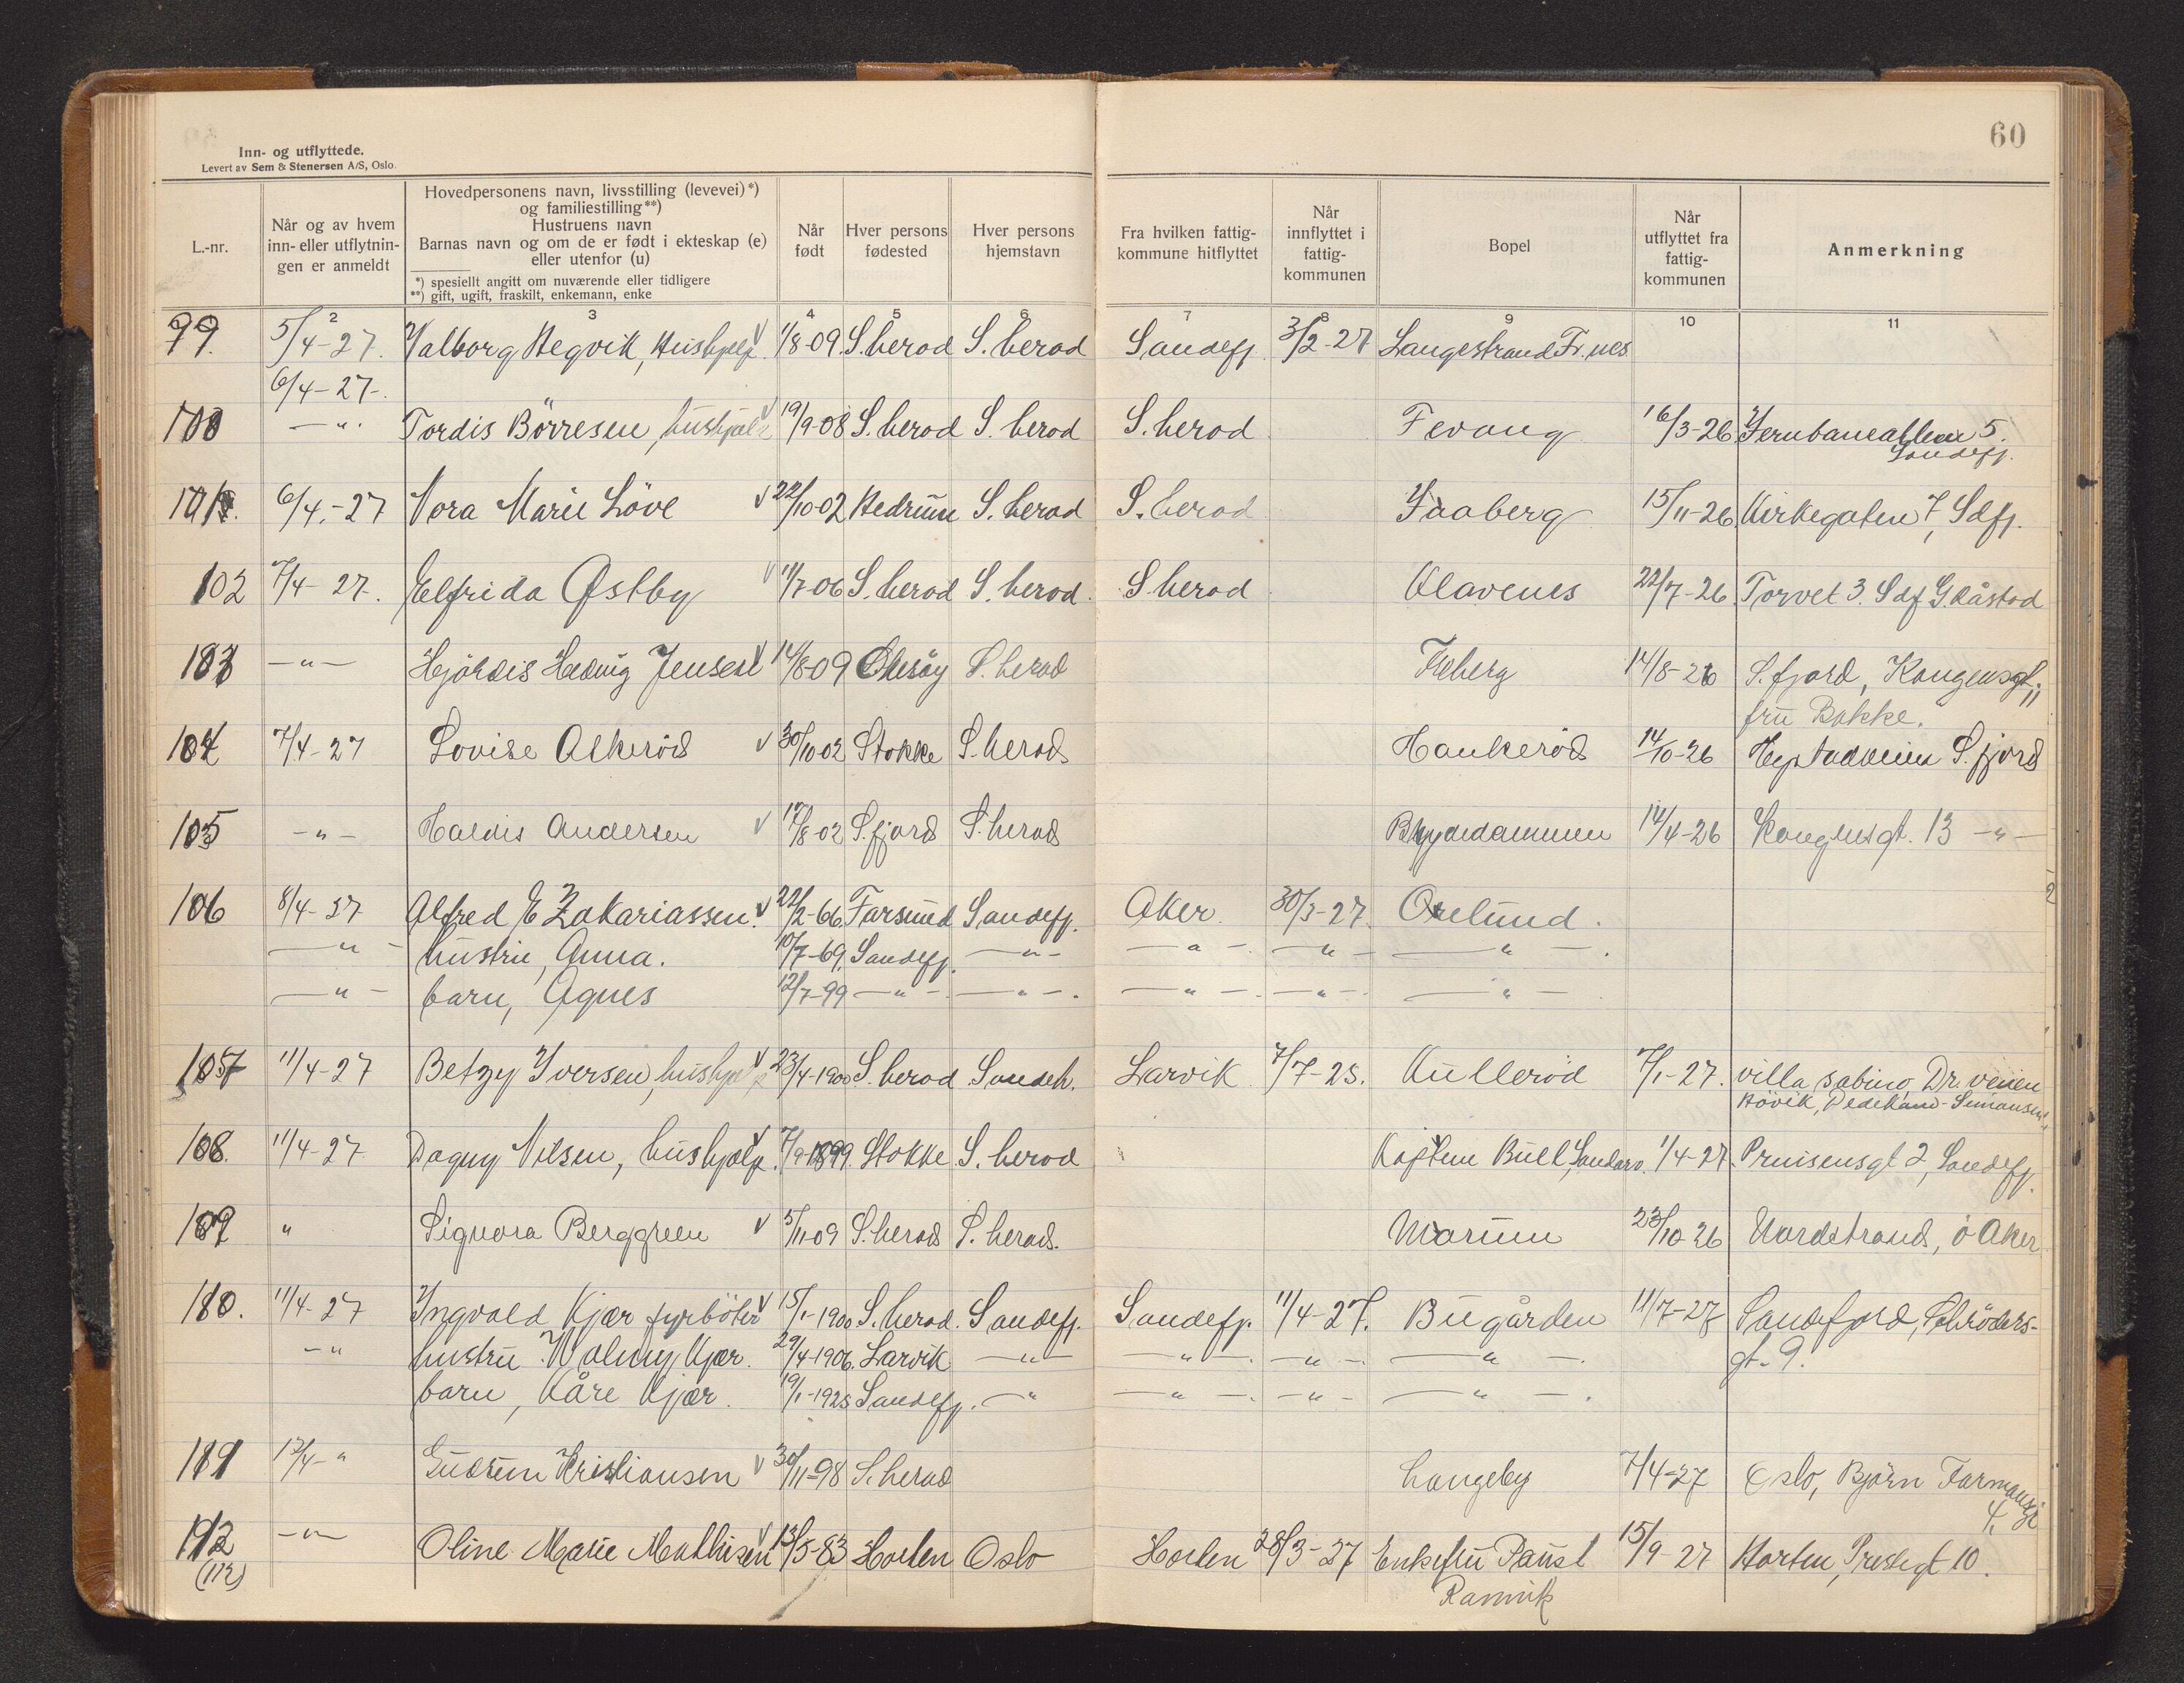 60
Inn- og utflyttede.
Levert av Sem & Stenersen A/S, Oslo.
L.-nr.
Når og av hvem inn- eller utflytnin- gen er anmeldt
Hovedpersonens navn, livsstilling (levevei)*) og familiestilling**)
Hustruens navn
Barnas navn og om de er født i ekteskap (e) eller utenfor (u)
*) spesiellt angitt om nuværende eller tidligere
**) gift, ugift, fraskilt, enkemann, enke
Når født
Hver persons fødested
Hver persons hjemstavn
Fra hvilken fattig- kommune hitflyttet
Når innflyttet i fattig- kommunen
Bopel
Når utflyttet fra fattig- kommunen
Anmerkning
2 3 4 5 6 7 8 9 10 11
99. 5/4-27. Valborg Hegvik, Hushjelp V 1/8-09. S. herad S. herad Sandefj. 3/2-27 Langestrand Fr.nes
6/4-27-.
100 -"- Tordis Börresen, hushjælp V 19/9-08 S. herad S. herad S. herad Fevang 16/3-26 Jernbanealleen 5. Sandefj.
101. 6/4.-27 Nora Marie Löve V 22/10-02 Hedrum S. herad S. herad Haaberg 15/11-26 Kirkegaten 7, Sdfj.
102 7/4-27. Elfrida Østby V 11/7-06 S. herad S. herad. S. herad Klavenes 22/7-26. Torvet 3. Sdf G. Råstad
103 -"- Hjördis Hedvig Jensen V 14/8-09 Ølesöy S. herad Feberg 14/8-26 S.fjord, Kongensgt. 11
fru Bakke.
104 7/4-27 Lovise Askeröd V 30/10-02 Stokke S. herad Haukeröd 14/10-26 S.fjord
105 -"- Haldis Andersen V 17/8-02 S.fjord S. herad Bryydedammen 14/4-26 Kongensgt. 13 -"-
106 8/4-27 Alfred E Zakariassen. V 22/2-66 Farsund Sandefj. Aker. 30/3-27. Orelund.
-"- hustru, Anna. 10/7-69. Sandefj. -"- -"- -"- -"-
-"- barn, Agnes 12/7-99 -"- -"- -"- -"- -"-
107 11/4-27 Betzy Iversen, hushjælp V 23/4-1900 S. herad Sandeh. Larvik 7/7-25. Kulleröd 7/1-27. villa sabino, Dr. veien
Hövik,
108. 11/4-27 Dagny Nilsen, hushjælp. V 7/9-1899. Stokke S. herad Kaptein Bull, Sandar. 1/4-27. Prinsensgt 2, Sandefj.
109 " Signora Berggreen V 5/11-09 S. herad S. herad. Marum 23/10-26 Nordstrand, ö Aker
110. 11/4-27 Ingvald Kjær fyrböter V 15/1-1900 S. herad. Sandefj. Sandefj. 11/4-27. Bugården 11/7-27 Sandefjord, Schröders-
gt. 9.
-"- hustru Valny Kjær. 29/4-1906. Larvik -"- -"- -"- -"-
barn, Kåre Kjær. 19/1-1925 Sandefj. -"- -"- -"- -"-
111 12/4-" Gudrun Kristiansen V 30/11-98 S. herad Langeby 7/4-27 Oslo, Björn Farmansgt
4.
112 -"- Oline Marie Mathisen V 13/5-83 Horten Oslo Horten 28/3-27 Enkefru Paust 15/9-27 Horten, Prestegt 10.
(112) Ranvik